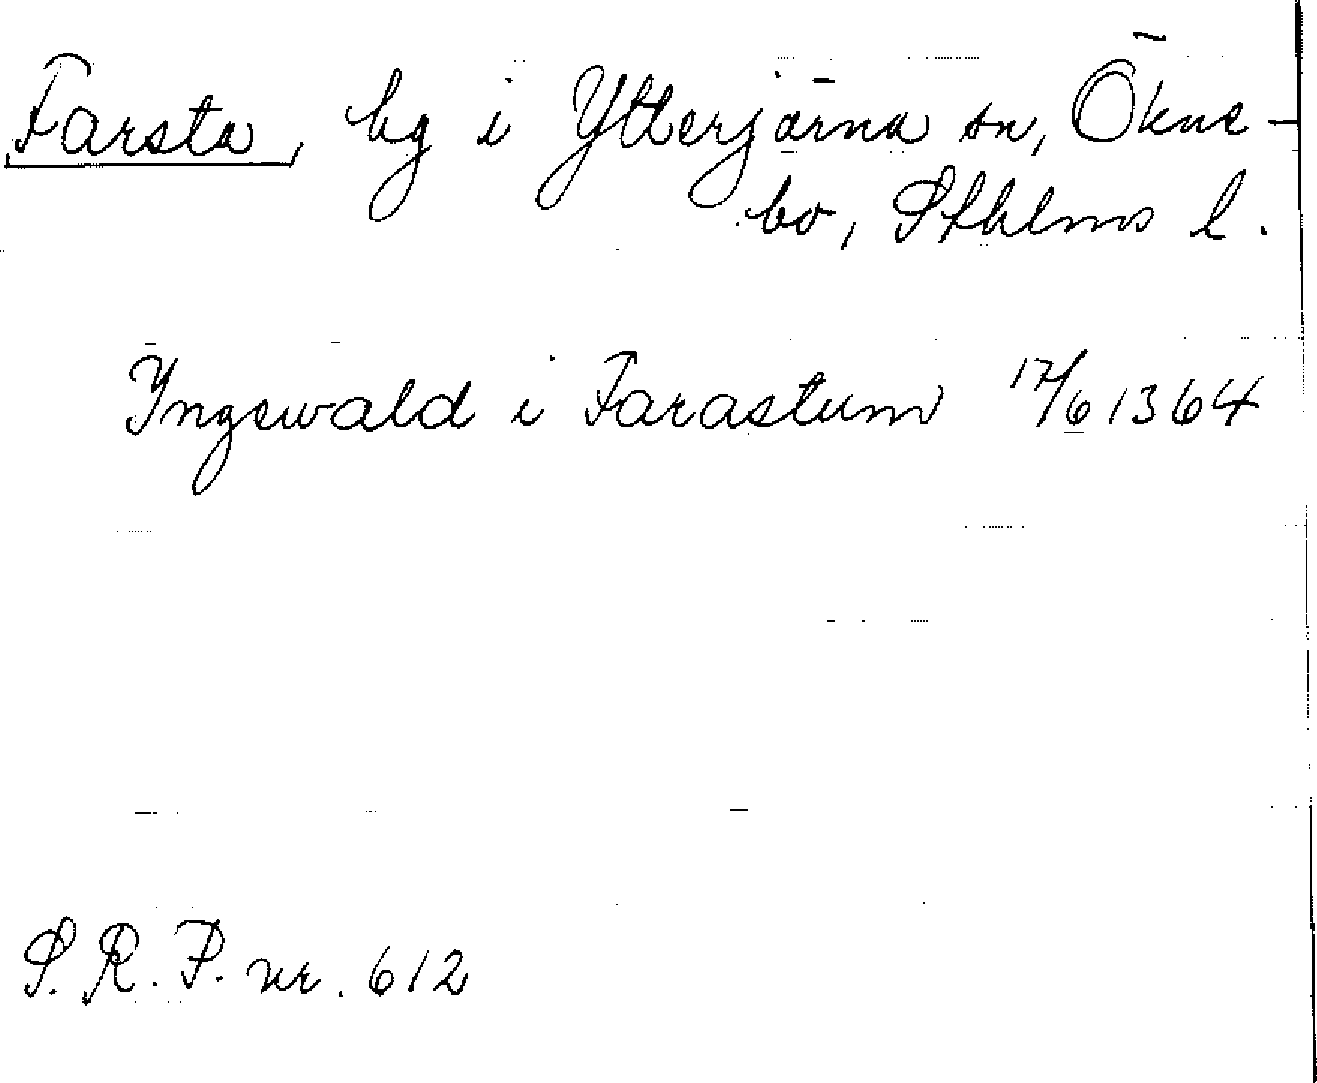 Farsta, by i Ytterjärna sn, Ökne-
bo, Sthlms l.
Yngewald i Farastum 17/6 1364
S.R.P. nr. 612